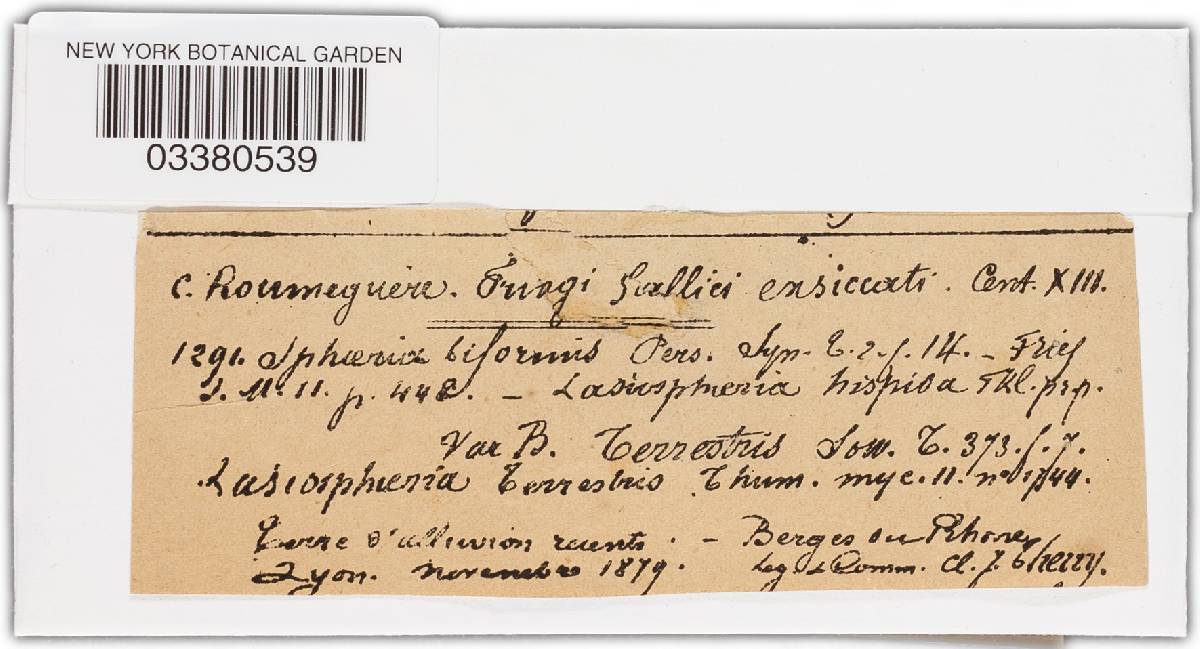 NEW YORK BOTANICAL GARDEN
03380539
C. Roumeguère. Fungi Gallici exsiccati. Cent. XIII.
1291. Sphæria biformis Pers. Syn. t. 2. f. 14. _ Fries
S. M. II. p. 448. _ Lasiosphæria hispida Fkl. p.p.
Var B. Terrestris Sow. t. 373. f. 7.
Lasiosphæria terrestris Thum. myc. II. no 1744.
Terre d'alluvion recents. _ Berges du Rhone,
Lyon. novembre 1879. Leg. & Comm. Cl. J. Therry.